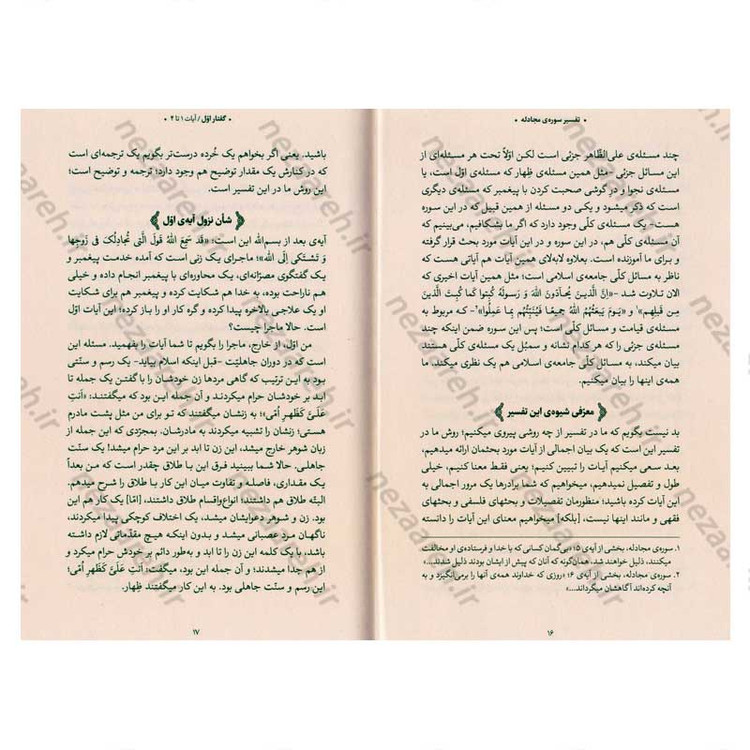 • تفسیر سوره‌ی مجادله •
چند مسئله‌ی علی‌الظّاهر جزئی است لکن اوّلاً تحت هر مسئله‌ای از
این مسائل جزئی -مثل همین مسئله‌ی ظِهار که مسئله‌ی اوّل است، یا
مسئله‌ی نجوا و در گوشی صحبت کردن با پیغمبر که مسئله‌ی دیگری
است که ذکر میشود و یکی دو مسئله‌ی از همین قبیل که در این سوره
هست- یک مسئله‌ی کلّی وجود دارد که اگر ما بشکافیم، می‌بینیم که
آن مسئله‌ی کلّی هم، در این سوره و در این آیات مورد بحث قرار گرفته
و برای ما آموزنده است. بعلاوه لابه‌لای همین آیات هم آیاتی هست که
ناظر به مسائل کلّی جامعه‌ی اسلامی است؛ مثل همین آیات اخیری که
الان تلاوت شد -«اِنَّ الَّذینَ یُحادّونَ اللهَ وَ رَسولَهُ کُبِتوا کَما کُبِتَ الَّذینَ
مِن قَبلِهِم»۱ و «یَومَ یَبعَثُهُمُ اللهُ جَمیعًا فَیُنَبِّئُهُم بِما عَمِلوا»۲- که مربوط به
مسئله‌ی قیامت و مسائل کلّی است؛ پس این سوره ضمن اینکه چند
مسئله‌ی جزئی را که هر کدام نشانه و سمبُل یک مسئله‌ی کلّی هستند
بیان میکند، به مسائل کلّی جامعه‌ی اسلامی هم یک نظری میکند، ما
همه‌ی اینها را بیان میکنیم.
معرّفی شیوه‌ی این تفسیر
بد نیست بگویم که ما در تفسیر از چه روشی پیروی میکنیم؛ روش ما در
تفسیر این است که یک بیان اجمالی از آیات مورد بحثمان ارائه میدهیم،
بعد سعی میکنیم آیات را تبیین کنیم؛ یعنی فقط معنا کنیم، خیلی
طول و تفصیل نمیدهیم، میخواهیم که شما برادرها یک مرور اجمالی به
این آیات کرده باشید؛ منظورمان تفصیلات و بحثهای فلسفی و بحثهای
فقهی و مانند اینها نیست، [بلکه] میخواهیم معنای این آیات را دانسته
۱. سوره‌ی مجادله، بخشی از آیه‌ی ۵؛ «بی‌گمان کسانی که با خدا و فرستاده‌ی او مخالفت
میکنند، ذلیل خواهند شد، همان‌گونه که آنان که پیش از ایشان بودند ذلیل شدند...»
۲. سوره‌ی مجادله، بخشی از آیه‌ی ۶؛ «روزی که خداوند همه‌ی آنها را برمی‌انگیزد و به
آنچه کرده‌اند آگاهشان میگرداند...»
۱۶
• گفتار اوّل / آیات ۱ تا ۴ •
باشید. یعنی اگر بخواهم یک خُرده درست‌تر بگویم یک ترجمه‌ای است
که در کنارش یک مقدار توضیح هم وجود دارد؛ ترجمه و توضیح است؛
این روش ما در این تفسیر است.
شأن نزول آیه‌ی اوّل
آیه‌ی بعد از بسم‌الله این است: «قَد سَمِعَ اللهُ قَولَ الَّتی تُجادِلُکَ فی زَوجِها
وَ تَشتَکی اِلَی الله»؛ ماجرای یک زنی است که آمده خدمت پیغمبر و
یک گفتگوی مصرّانه‌ای، یک محاوره‌ای با پیغمبر انجام داده و خیلی
هم ناراحت بوده، به خدا هم شکایت کرده و پیغمبر هم برای شکایت
او یک علاجی بالاخره پیدا کرده و گره کار او را باز کرده؛ این آیات اوّل
است. حالا ماجرا چیست؟
من اوّل، از خارج، ماجرا را بگویم تا شما آیات را بفهمید. مسئله این
است که در دوران جاهلیّت -قبل اینکه اسلام بیاید- یک رسم و سنّتی
بود به این ترتیب که گاهی مردها زن خودشان را با گفتن یک جمله تا
ابد بر خودشان حرام میکردند و آن جمله این بود که میگفتند: «اَنتِ
عَلَیَّ کَظَهرِ اُمّی»؛ به زنشان میگفتند که تو برای من مثل پشت مادرم
هستی؛ زنشان را تشبیه میکردند به مادرشان. بمجرّدی که این جمله از
زبان شوهر خارج میشد، این زن تا ابد بر این مرد حرام میشد! یک سنّت
جاهلی. حالا شما ببینید فرق این با طلاق چقدر است که من بعداً
یک مقداری، فاصله و تفاوت میان این کار با طلاق را شرح میدهم.
البتّه طلاق هم داشتند؛ انواع‌واقسام طلاق داشتند، [امّا] یک کار هم این
بود. زن و شوهر دعوایشان میشد، یک اختلاف کوچکی پیدا میکردند،
ناگهان مرد عصبانی میشد و بدون اینکه هیچ مقدّماتی لازم داشته
باشد، با یک کلمه این زن را تا ابد و به‌طور دائم بر خودش حرام میکرد و
از هم جدا میشدند؛ و آن جمله این بود، میگفت: «اَنتِ عَلَیَّ کَظَهرِ اُمّی»؛
این رسم و سنّت جاهلی بود. به این کار میگفتند ظِهار.
۱۷
nezaareh.ir